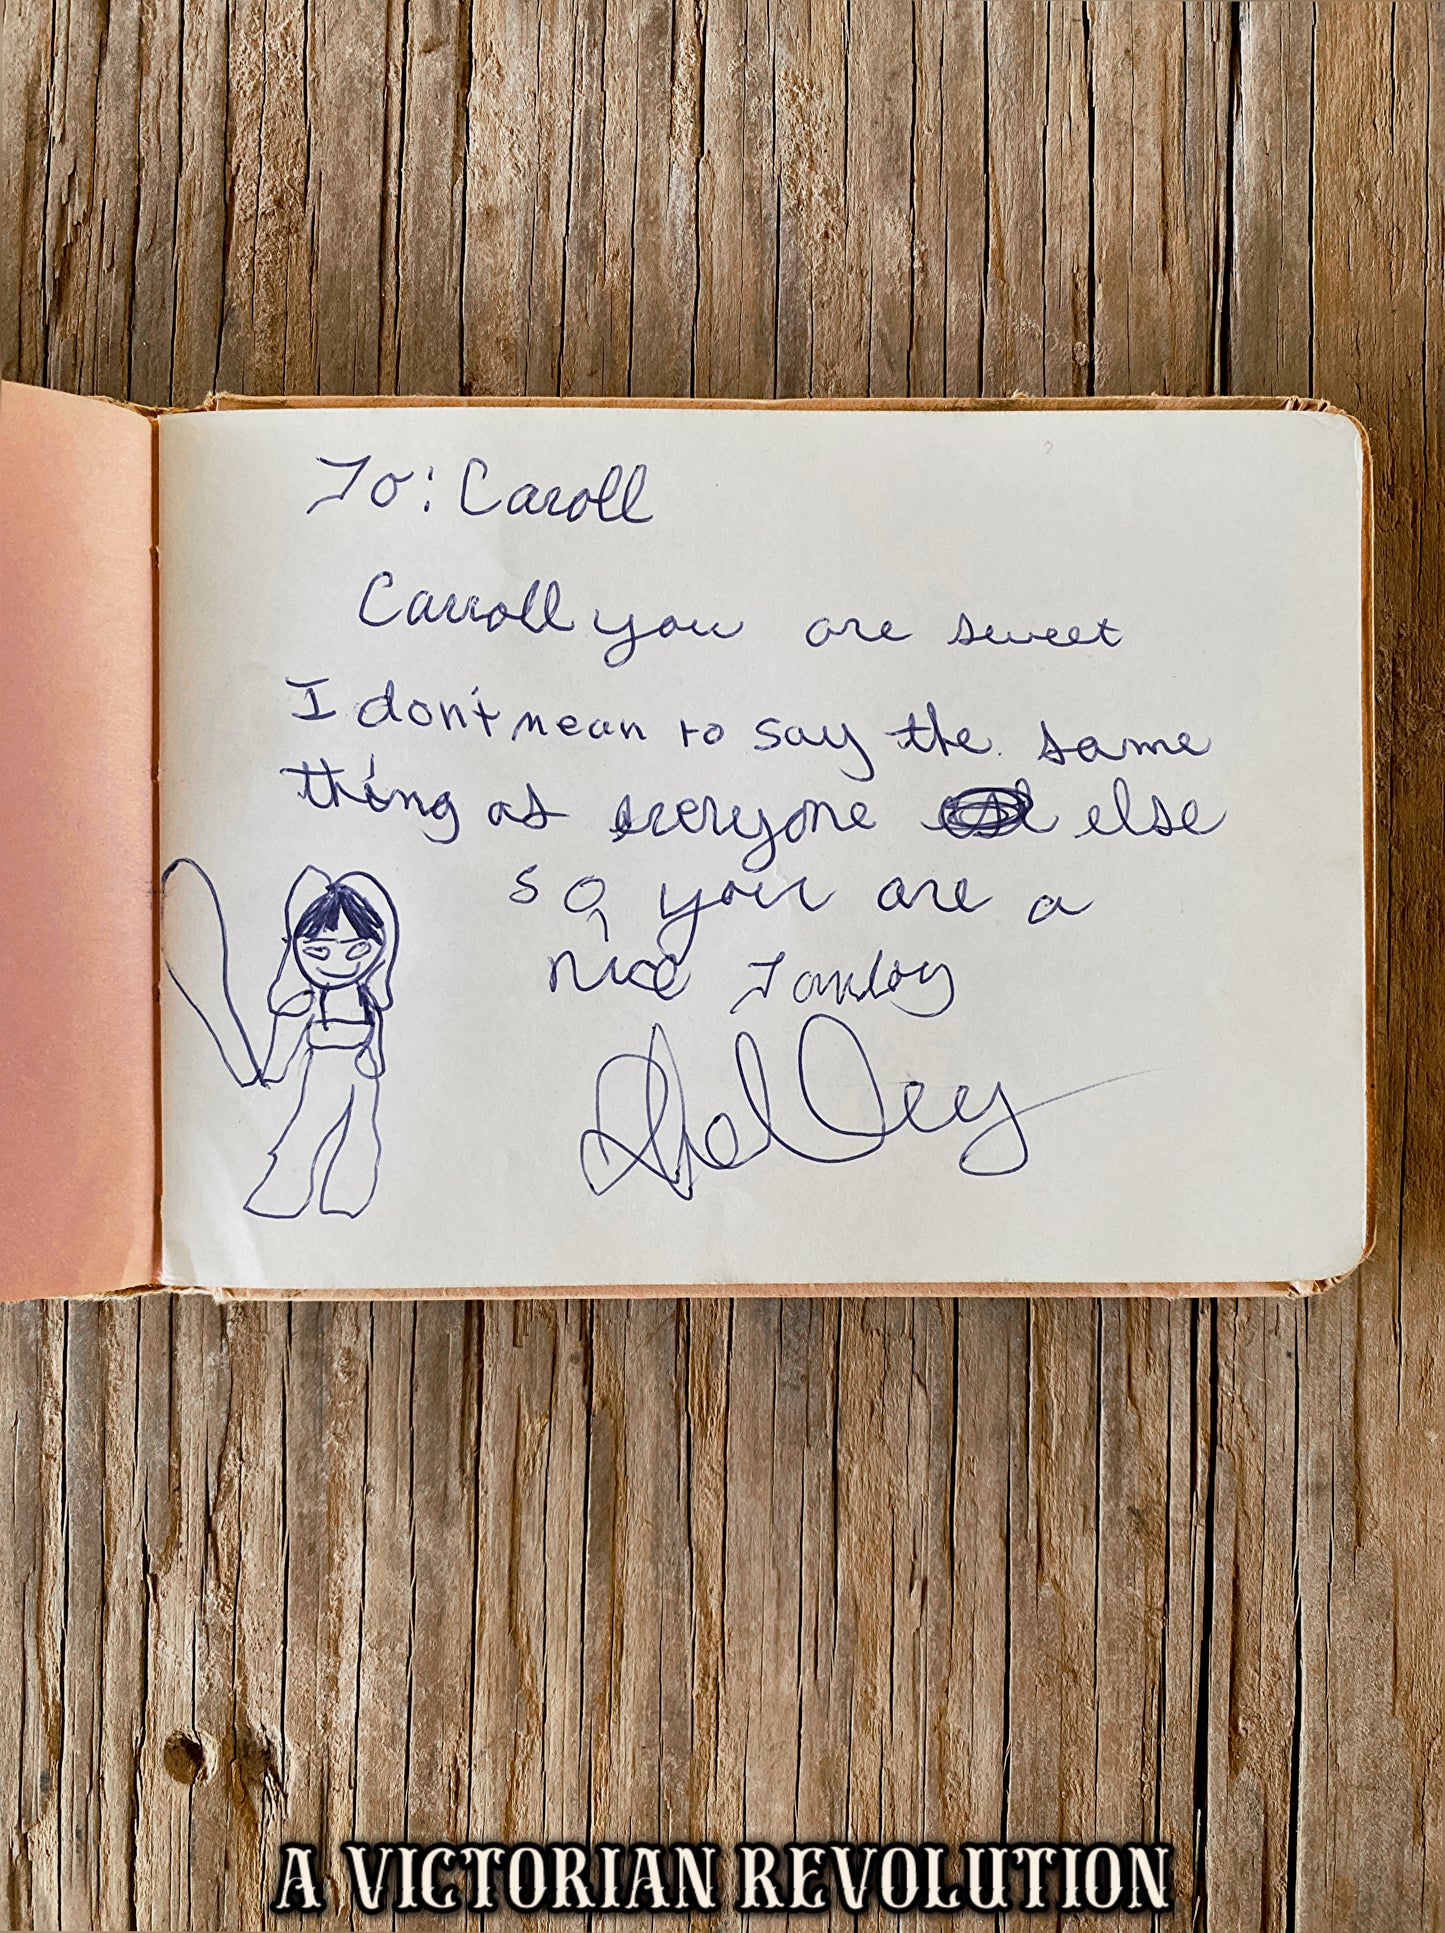 To: Caroll
Carroll you are sweet
I don't mean to say the same
thing as everyone else
so, you are a
nice
A VICTORIAN REVOLUTION